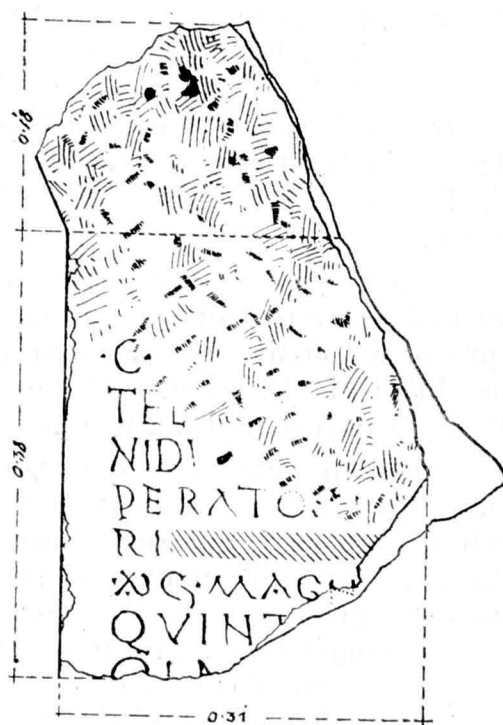 0·18
0·38
·C·
TEL
NIDI
PERATO
RI
·AVG·MAG
QVINT
0·31